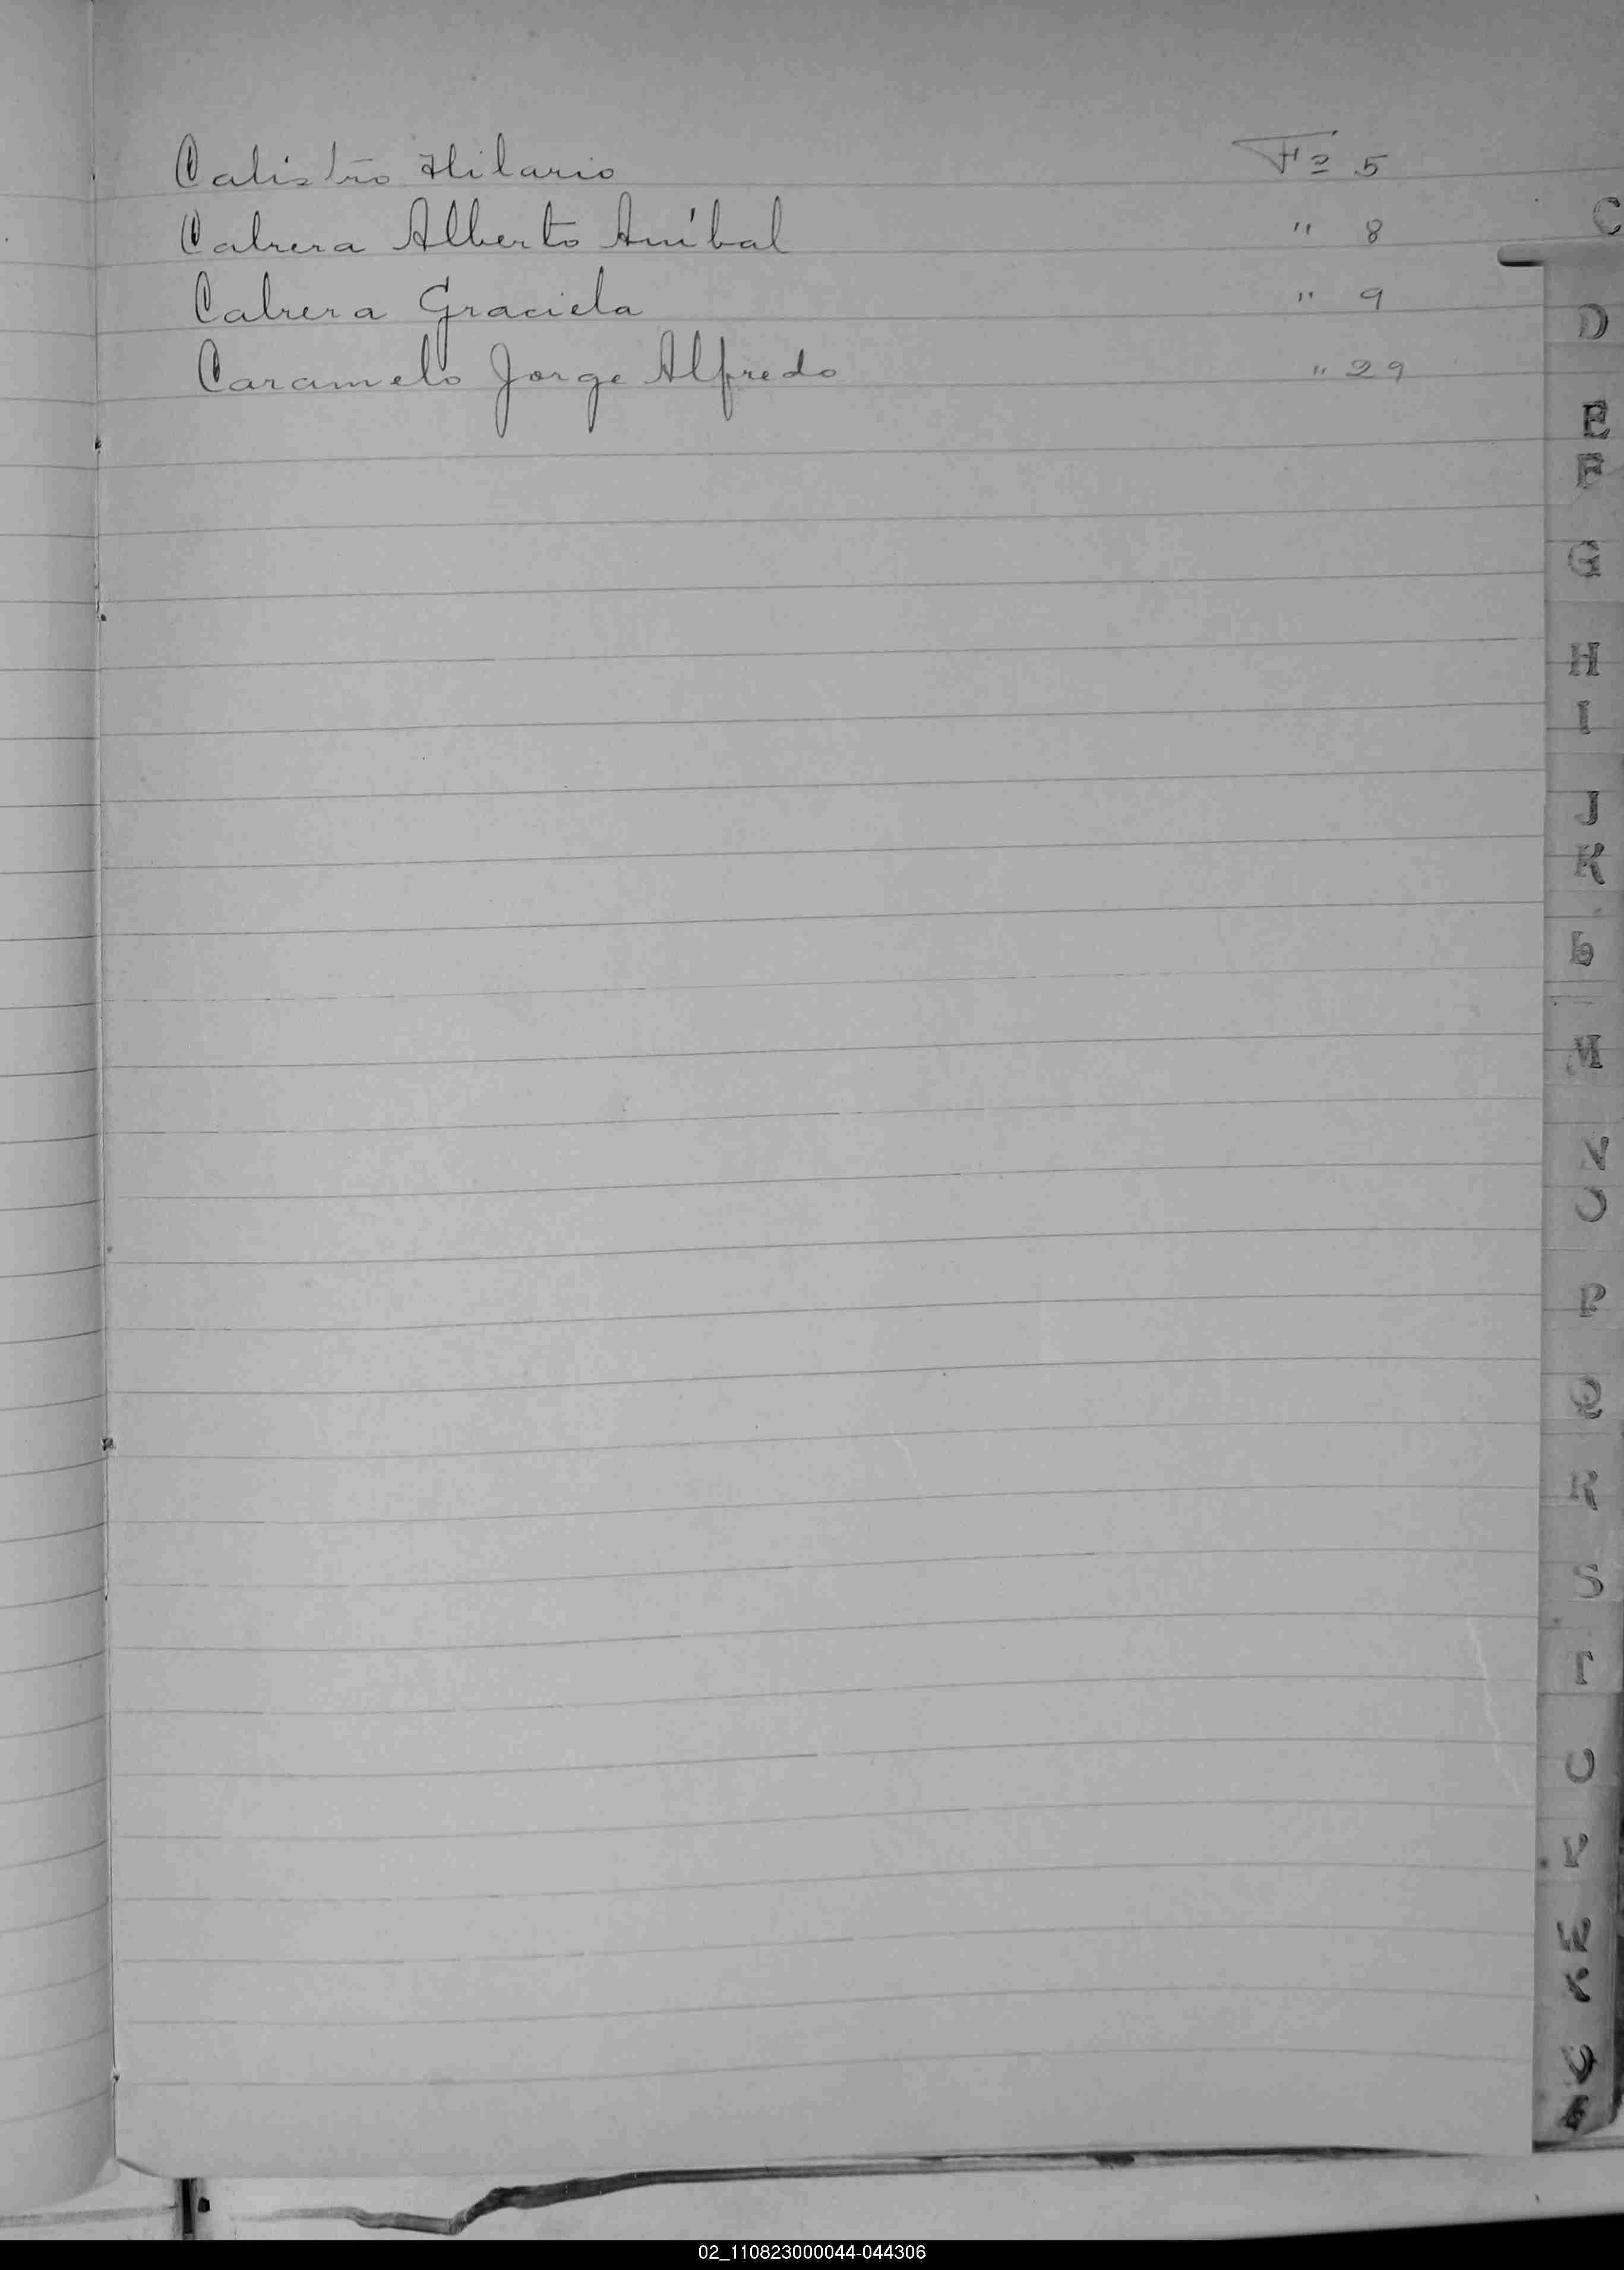 Calistro Hilario Fº 5
Cabrera Alberto Aníbal " 8
Cabrera Graciela " 9
Caramelo Jorge Alfredo " 29
C
D
E
F
G
H
I
J
K
L
M
N
O
P
Q
R
S
T
U
V
02_110823000044-044306